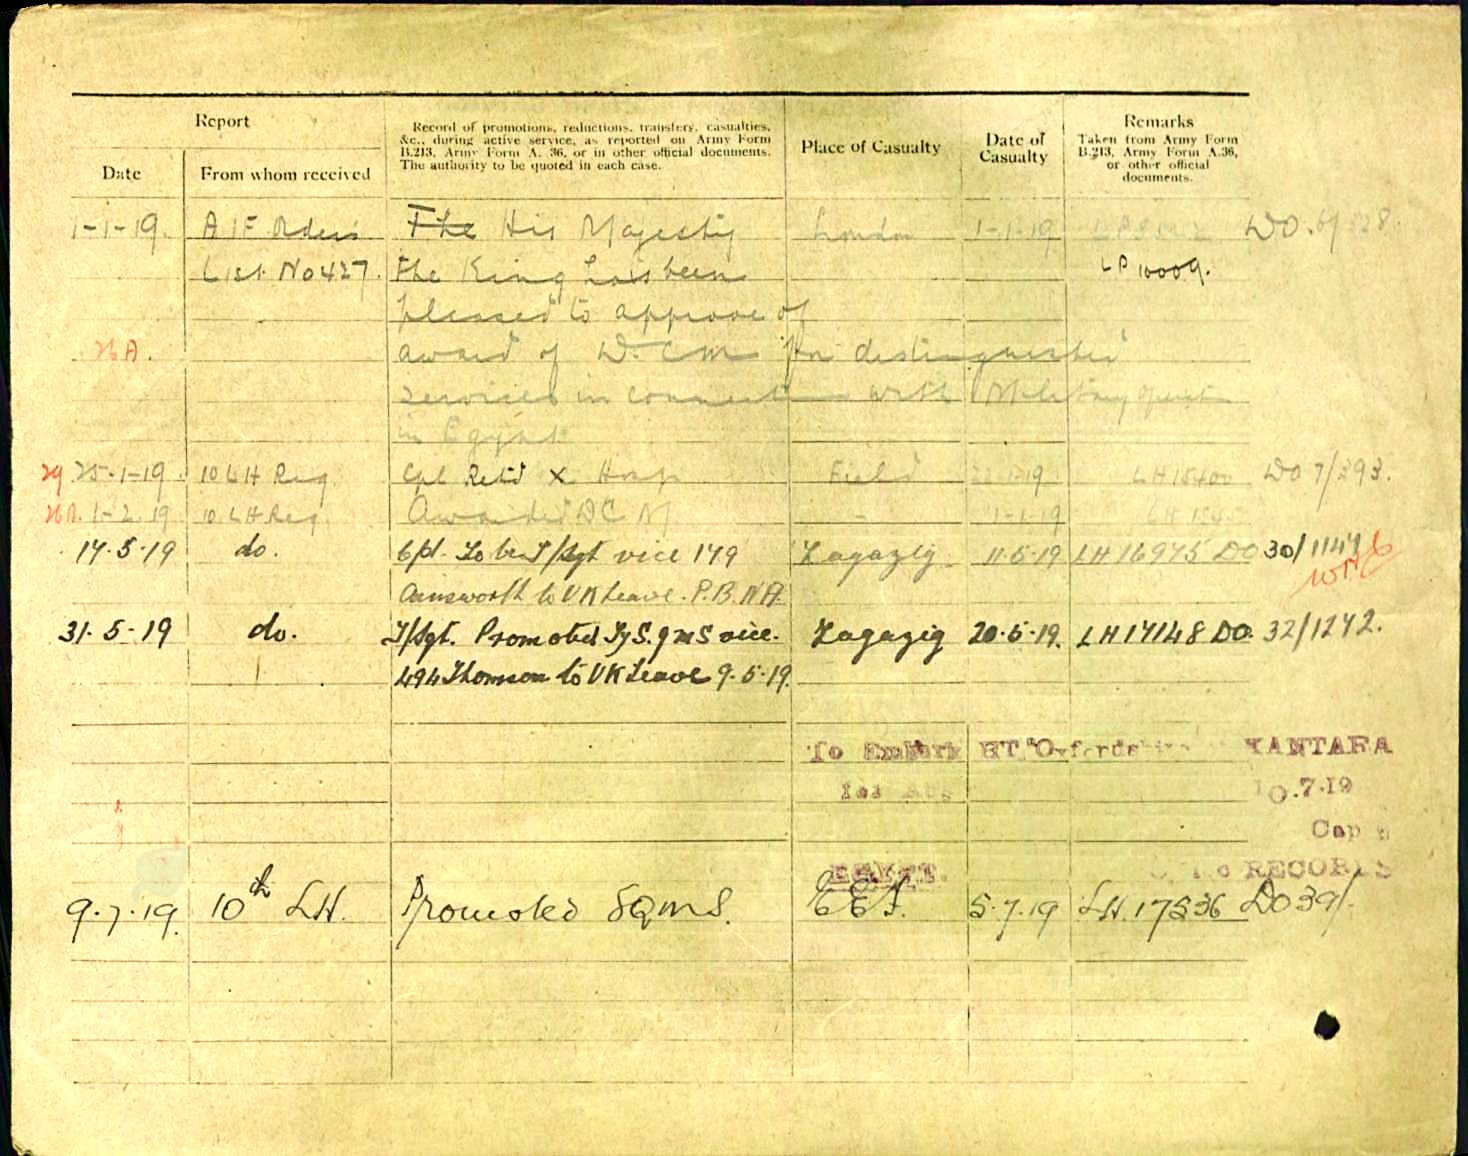 Report
Record of promotions, reductions, transfers, casualties,
&c., during active service, as reported on Army Form
B.213, Army Form A. 36, or in other official documents.
The authority to be quoted in each case.
Place of Casualty
Date of
Casualty
Remarks
Taken from Army Form
B.213, Army Form A.36,
or other official
documents.
Date
From whom received
1-1-19. A I F Orders The His Majesty London 1-1-19 DO. 6/528.
List No 427. The King has been LP 10009.
pleased to approve of
26A. award of D.C.M for distinguished
services in connection with Military operations
in Egypt
29 25-1-19 10 L H Reg Cpl Retd X Hosp Field 19 LH 15400 DO 7/393.
26A. 1-2-19 10 LH Reg Awarded DCM - 1-1-19
17.5.19 do. Cpl. To be T/Sgt vice 179 Zagazig 11.5.19 LH 16975 DO 30/1141
Ainsworth to UK Leave.
31.5.19 do. T/Sgt. Promoted Ty S.QMS vice. Zagazig 20.5.19. LH 17148 DO. 32/1272.
494 Thomson to UK Leave 9.5.19.
To Embark HT "Oxfordshire KANTARA
.7.19
Cap
RECORDS
EGYPT.
9.7.19. 10th LH. Promoted SQMS. EEF. 5.7.19 LH. 17536 DO 39/.